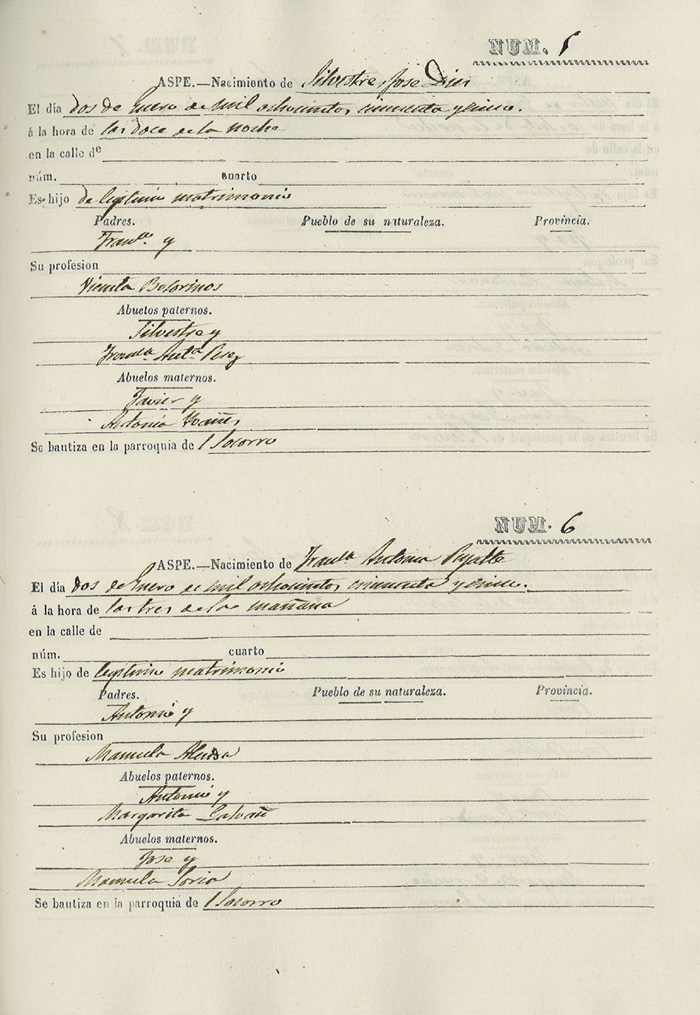 NUM. 5
ASPE.—Nacimiento de Silvestre Jose Dies
El día dos de Enero de mil ochocientos cincuenta y cinco.
á la hora de las doce de la noche
en la calle de
núm. cuarto
Es hijo de legitimo matrimonio
Padres. Pueblo de su naturaleza. Provincia.
Franco. y
Su profesion
Vicenta Botorinos
Abuelos paternos.
Silvestre y
Franca. Anta. Perez
Abuelos maternos.
Javier y
Antonia
Se bautiza en la parroquia de l Socorro
NUM. 6
ASPE.—Nacimiento de Franca. Antonia Pujalte
El día dos de Enero de mil ochocientos cincuenta y cinco.
á la hora de las tres de la mañana
en la calle de
núm. cuarto
Es hijo de legitimo matrimonio
Padres. Pueblo de su naturaleza. Provincia.
Antonio y
Su profesion
Manuela
Abuelos paternos.
Antonio y
Margarita Galvañ
Abuelos maternos.
Jose y
Manuela Soria
Se bautiza en la parroquia de l Socorro